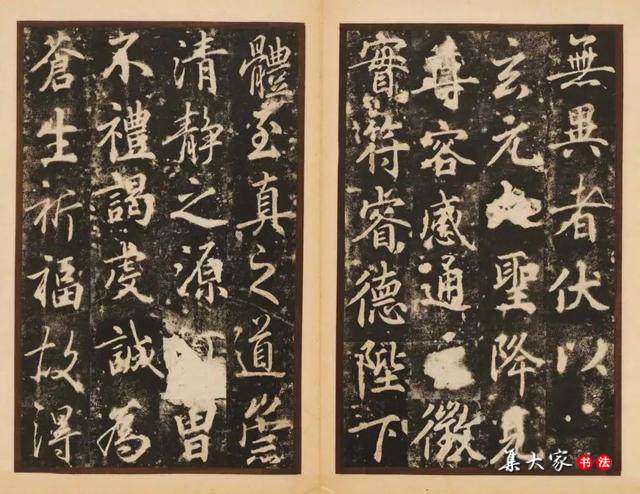 無異者伏以
玄元聖降見
尊容感通徵
實符睿德陛下
體至真之道崇
清靜之源曾
不禮謁虔誠為
蒼生祈福故得
集大家 书法